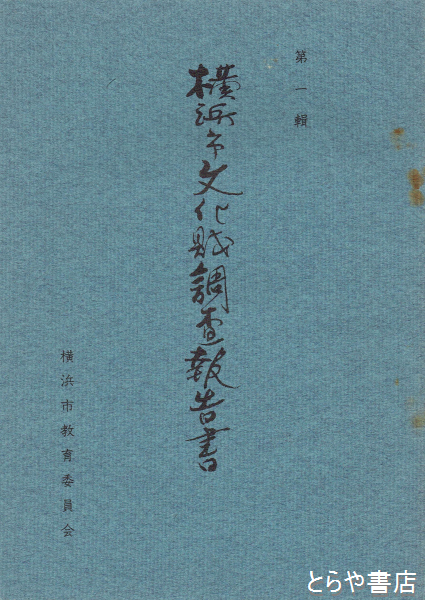 第一輯
横浜市文化財調査報告書
横浜市教育委員会
とらや書店